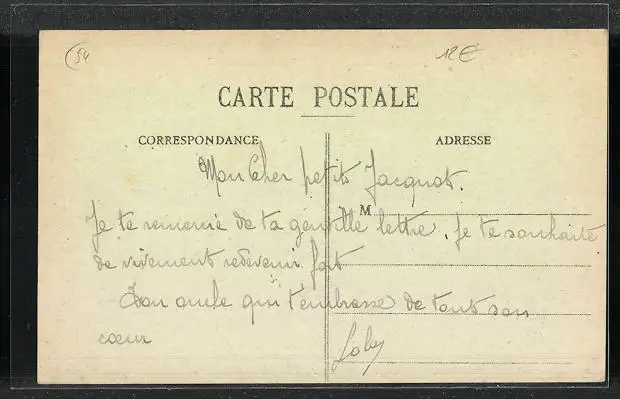 (54
12€
CARTE POSTALE
CORRESPONDANCE
ADRESSE
Mon Cher petit Jacquot.
M
Je te remercie de ta gentille lettre. Je te souhaite
de vivement redevenir fort
Ton oncle qui t'embrasse de tout son
cœur